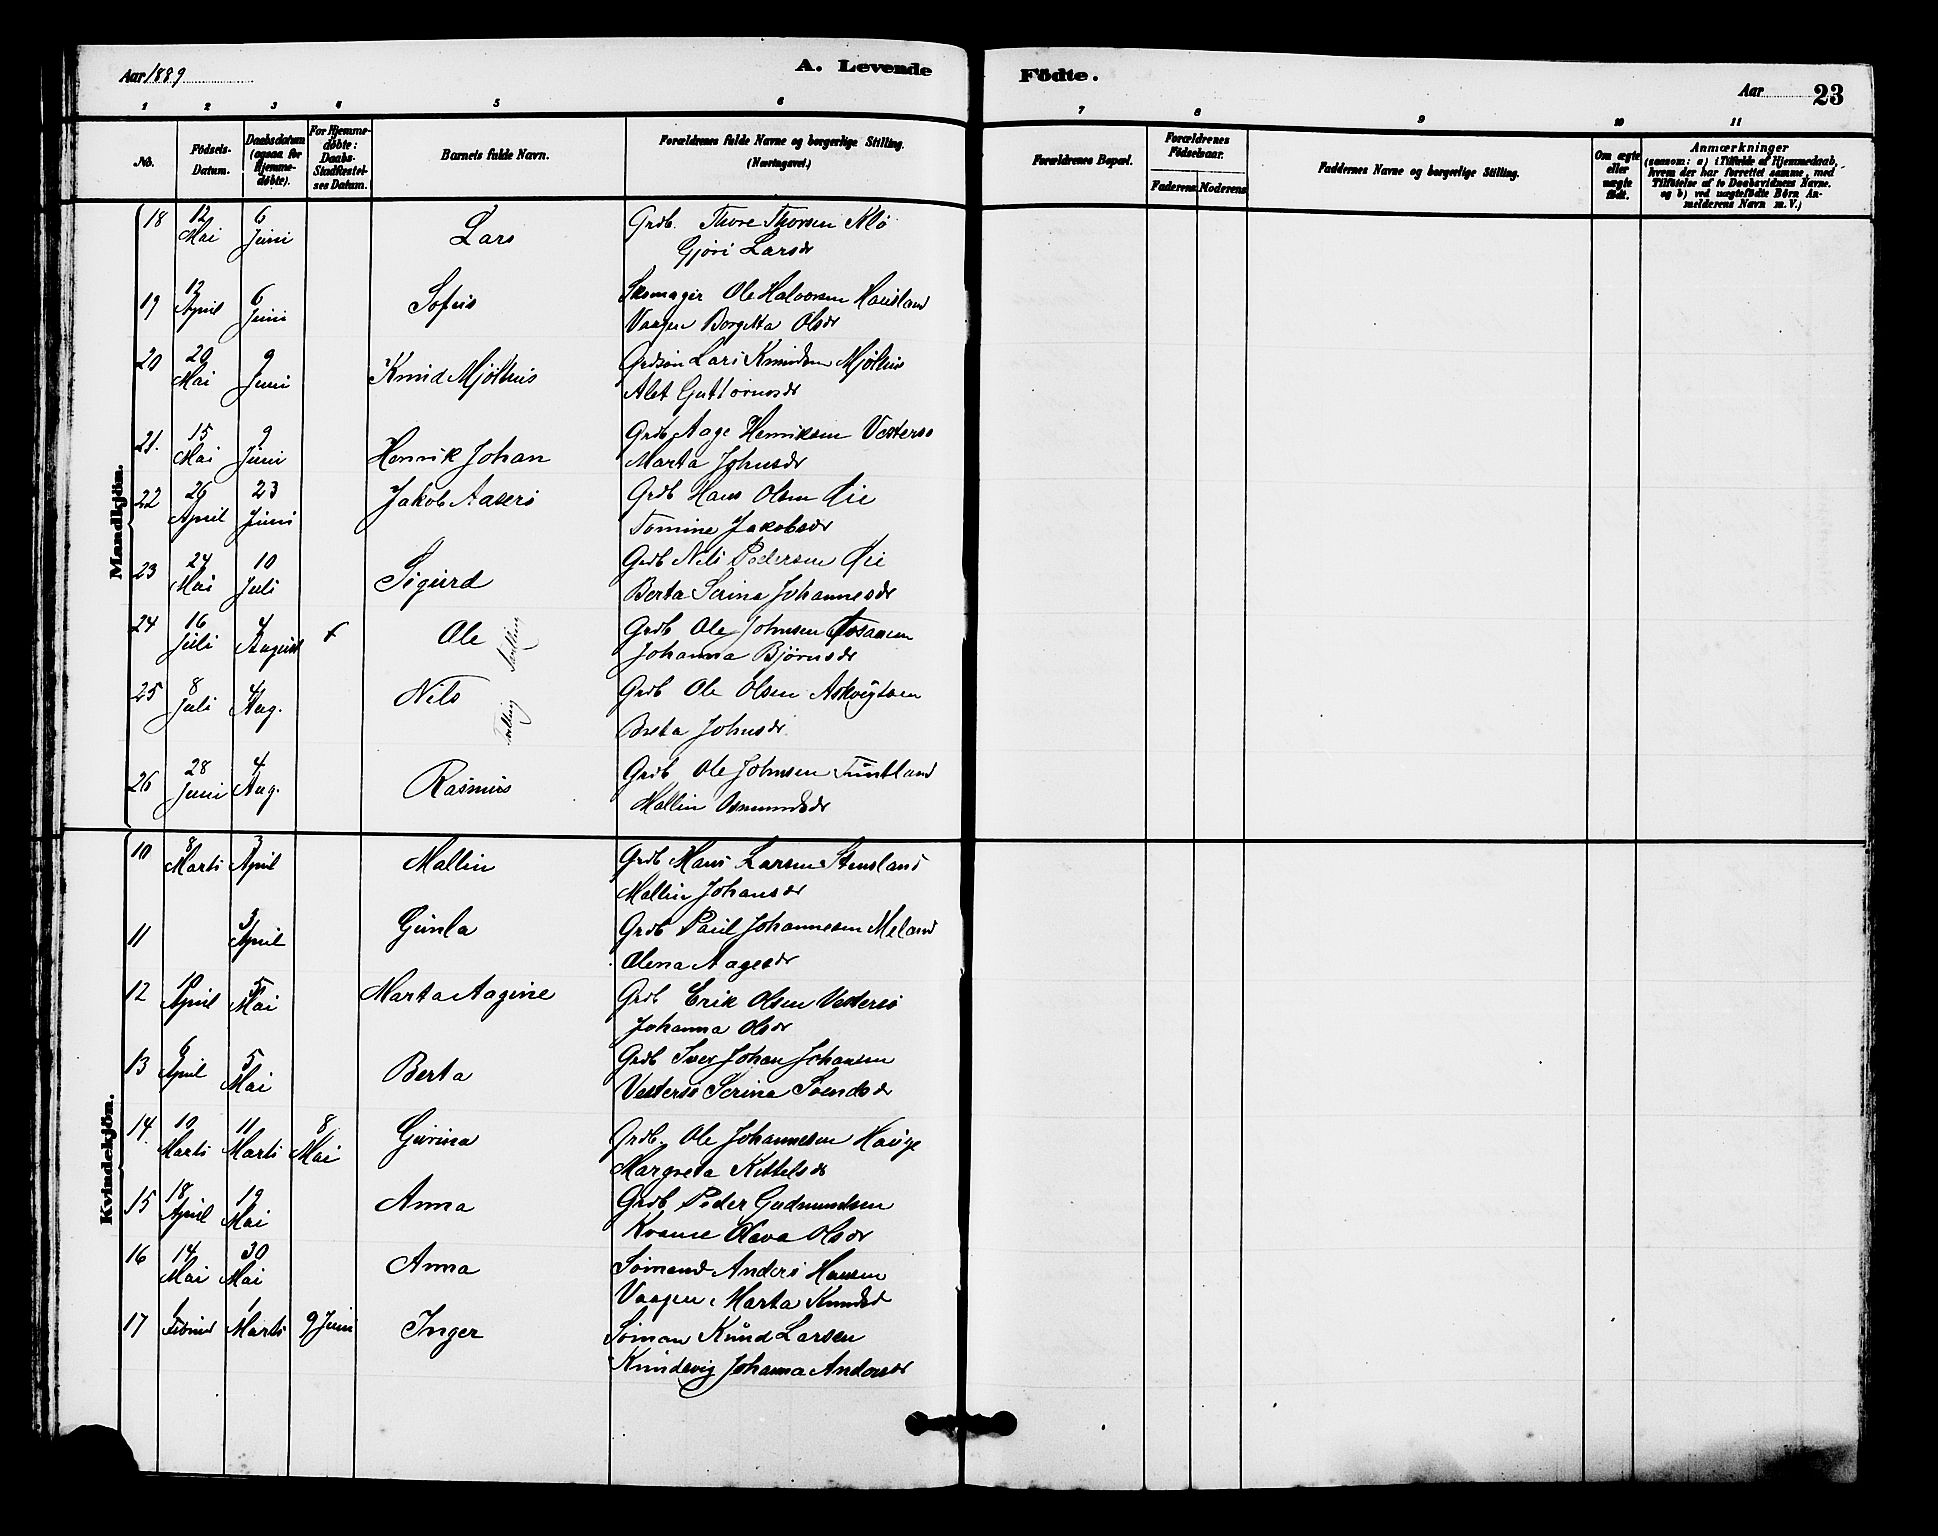 Aar 1889
A. Levende
Födte.
Aar
23
1 2 3 4 5 6 7 8 9 10 11
No.
Födsels-Datum.
Daabsdatum (ogsaa for Hjemmedøbte).
For Hjemmedøbte: Daabs-Stadfæstelses Datum.
Barnets fulde Navn.
Forældrenes fulde Navne og borgerlige Stilling. (Næringsvei.)
Forældrenes Bopæl.
Forældrenes Fødselsaar.
Faderens Moderens
Faddernes Navne og borgerlige Stilling.
Om ægte eller uægte født.
Anmærkninger
(saasom: a) i Tilfælde af Hjemmedaab, hvem der har forrettet samme, med Tilføielse af to Daabsvidners Navne. og b) ved uægtefødte Børn Anmelderens Navn m. V.)
Mandkjön.
18 12 Mai 6 Juni Lars Grdb. Thore Thorsen Klø
Gjøri Larsdr
19 12 April 6 Juni Sofus Skomager Ole Halvorsen Hausland
Vaagen Borgitta Olsdr
20 20 Mai 9 Juni Knud Mjølhus Grdsøn Lars Knudsen Mjølhus
Alet Guttormsdr
21. 15 Mai 9 Juni Henrik Johan Grdb Aage Henriksen Vesterø
Marta Johnsdr
22 26 April 23 Juni Jakob Aaserø Grdb Hans Olsen Øie
Tomine Jakobsdr
23 24 Mai 10 Juli Sigurd Grdb Nels Pedersen Øie
Berta Serina Johannesdr
24 16 Juli 4 August + Ole Tvilling Grdb Ole Johnsen
Johanna Bjørnsdr
25 8 Juli 4 Aug. Nels Tvilling Grdb Ole Olsen Askvigtoen
Breta Johnsdr
26 28 Juni 4 Aug. Rasmus Grdb Ole Johnsen Tuntland
Mallin Osmundsdr
Kvindekjön.
10 8 Marts 3 April Mallin Grdb Hans Larsen Stensland
Mallin Johansdr
11 3 April Gunla Grdb Paul Johannesen Meland
Olena Aagesdr
12 10 April 5 Mai Marta Aagine Grdb Erik Olsen Vesterø
Johanna Olsdr
13 6 April 5 Mai Berta Grdb Iver Johan Johansen
Vesterø Serina Svendsdr
14. 10 Marts 11 Marts 8 Mai Gurina Grdb. Ole Johannesen Hauge
Margreta Kittelsdr
15 18 April 19 Mai Anna Grdb Peder Gudmundsen
Olava Olsdr
16 14 Mai 30 Mai Anna Sømand Anders Hansen
Vaagen, Marta Knudsd
17 1 Marts 9 Juni Inger Søman Knud Larsen
Knudsvig Johanna Andersdr